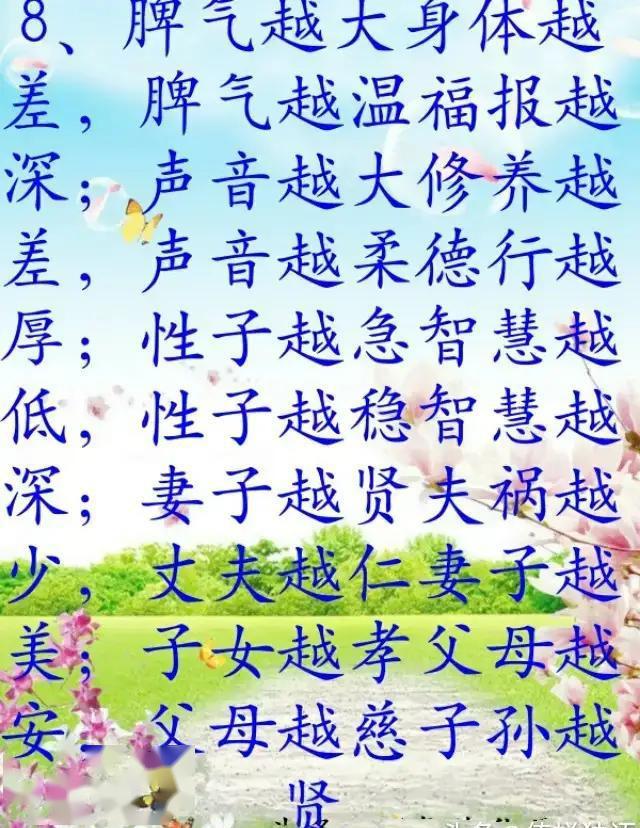 8、脾气越大身体越
差，脾气越温福报越
深；声音越大修养越
差，声音越柔德行越
厚；性子越急智慧越
低，性子越稳智慧越
深；妻子越贤夫祸越
少，丈夫越仁妻子越
美；子女越孝父母越
安，父母越慈子孙越
贤